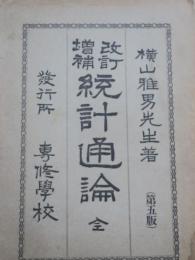 横山雅男先生著
(第五版)
改訂
増補
統計通論
全
發行所
專修學校